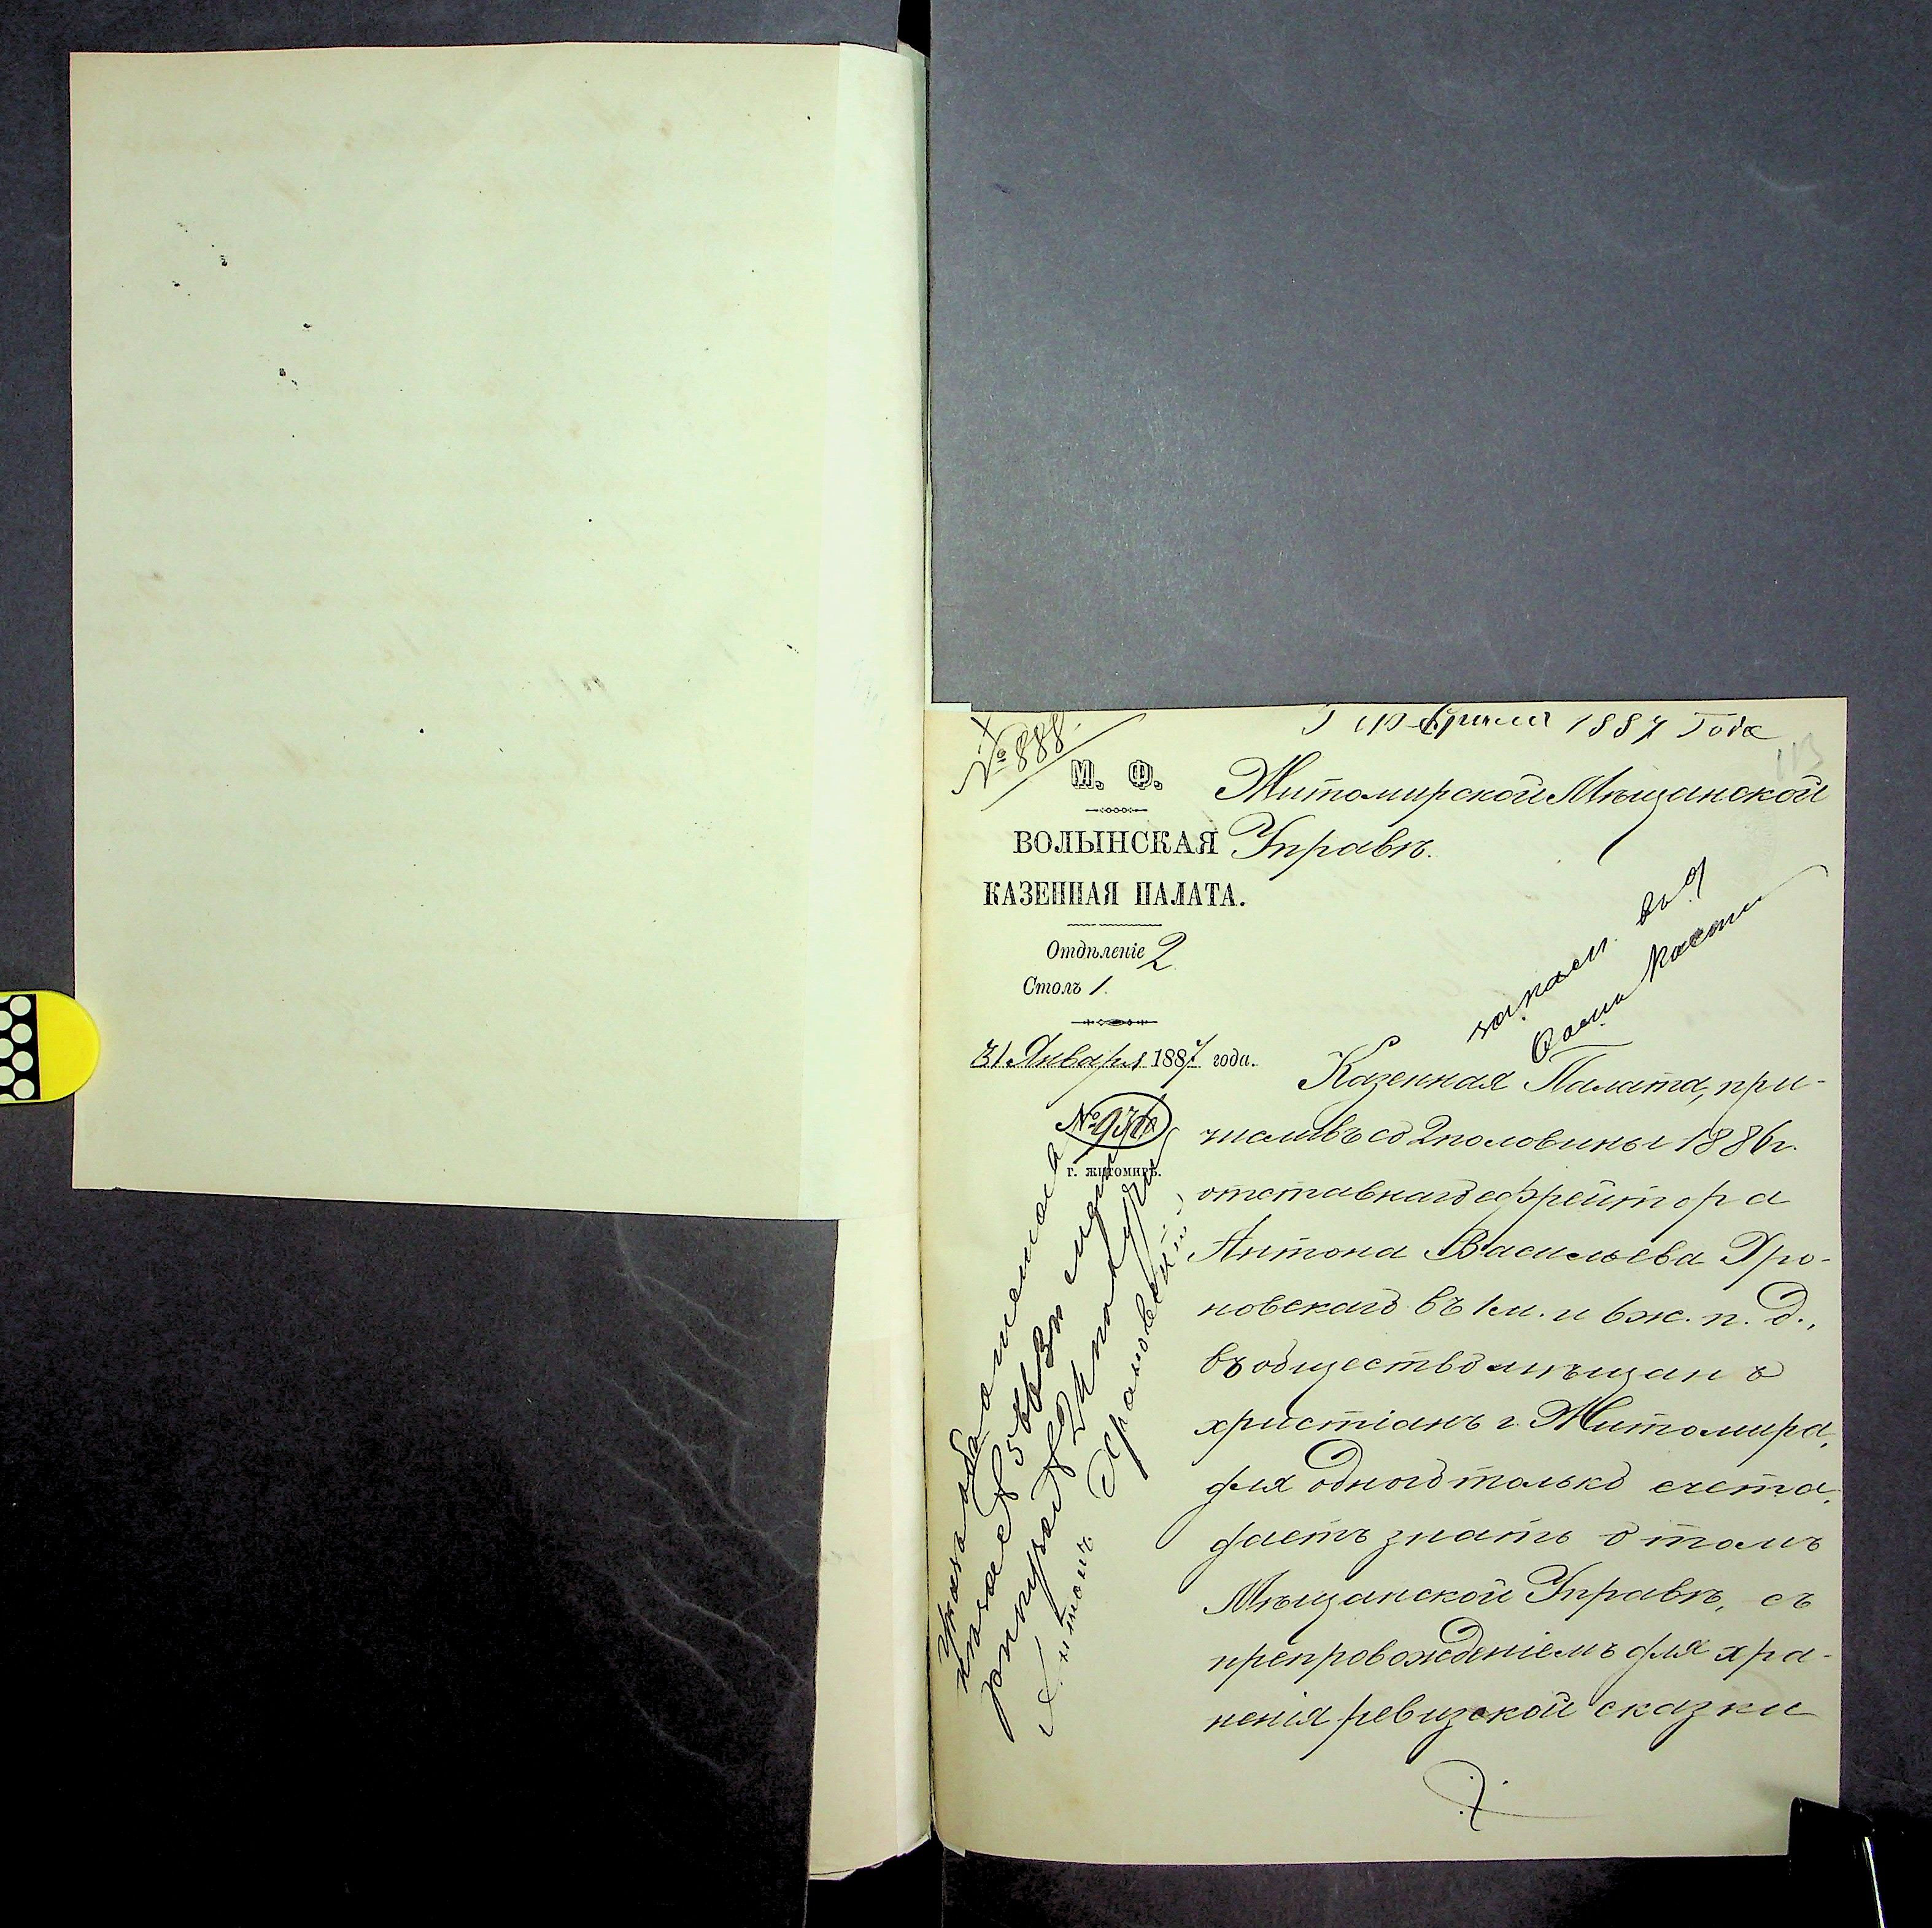 № 888.
1887 Года
113
М. Ф.
ВОЛЫНСКАЯ
КАЗЕННАЯ ПАЛАТА.
Отдѣленіе 2
Столъ 1.
31 Января 1887 года.
№
г. ЖИТОМИРЪ.
Житомирской Мѣщанской
Управѣ.
Казенная Палата, при-
числивъ со 2 половины 1886 г.
отставнаго ефрейтора
Антона Васильева Хро-
новскаго въ 1 м. и 6 ж. п. д.,
въ общество мѣщанъ
христіанъ г. Житомира,
для одного только счета,
даетъ знать о томъ
Мѣщанской Управѣ, съ
препровожденіемъ для хра-
ненія ревизской сказки
Антонъ Храновскій